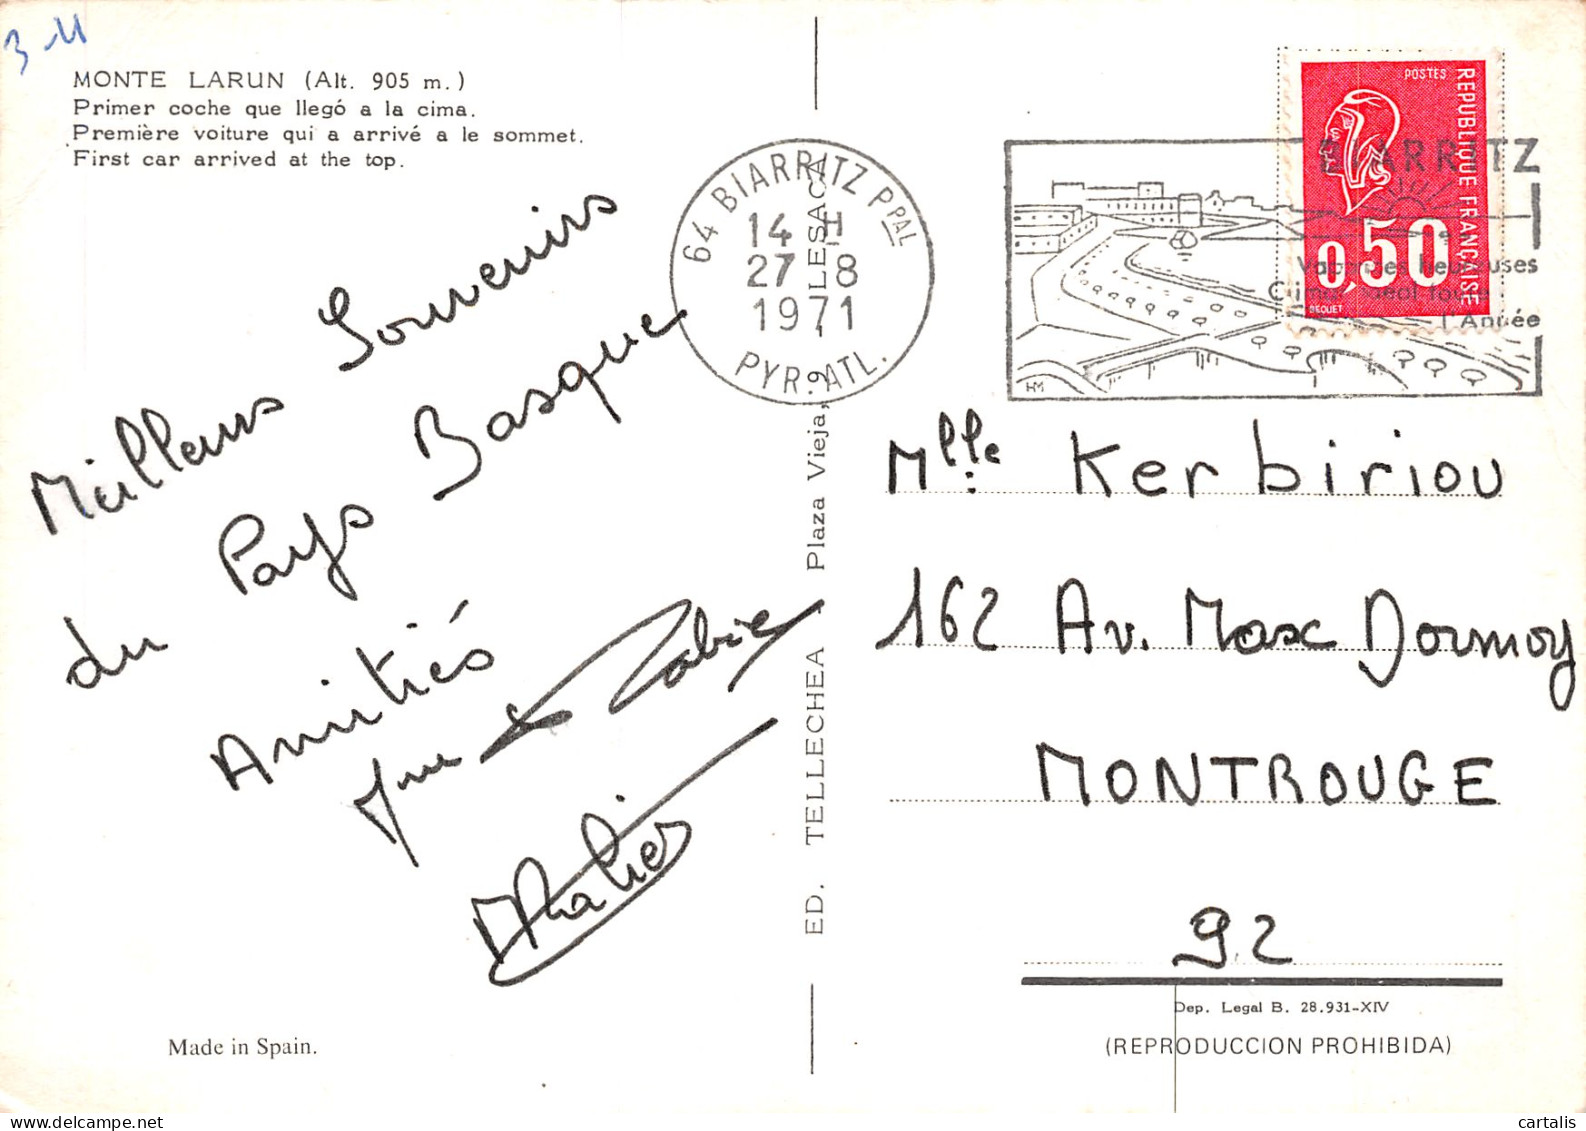 3 11
MONTE LARUN (Alt. 905 m.)
Primer coche que llegó a la cima.
Première voiture qui a arrivé a le sommet.
First car arrived at the top.
Meilleurs Souvenirs
du Pays Basque
Amitiés
Made in Spain.
64 BIARRITZ PPAL
14 H
27 - 8
1971
PYR. ATL.
ED. TELLECHEA - Plaza Vieja, 9 - LESACA
BIARRITZ
Vacances heureuses
Climat idéal toute
l'Année
HM
POSTES
REPUBLIQUE FRANÇAISE
0,50
BEQUET
Mlle Kerbiriou
162 Av. Marx Dormoy
MONTROUGE
92
Dep. Legal B. 28.931-XIV
(REPRODUCCION PROHIBIDA)
cartalis